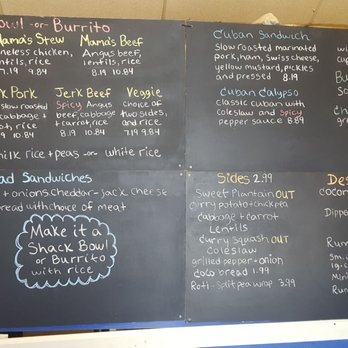 Bowl -or- Burrito
Mama's Stew
boneless chicken,
lentils, rice
7.19 9.84
Mama's Beef
Angus beef,
lentils, rice
8.14 10.84
Pork
slow roasted
cabbage +
rice
9.84
Jerk Beef
Spicy Angus
beef, cabbage
+ carrot, rice
10.84
Veggie
choice of
two sides,
and rice
7.19 9.84
milk rice + peas -or- white rice
Cuban Sandwich
slow roasted marinated
pork, ham, swiss cheese,
yellow mustard, pickles
and pressed 8.19
Cuban Calypso
classic cuban with
coleslaw and spicy
pepper sauce 8.89
Sandwiches
+ onions cheddar-jack cheese
bread with choice of meat
Make it a
Shack Bowl
or Burrito
with rice
Sides 2.99
Sweet Plantain OUT
curry potato + chickpea
cabbage + carrot
Lentils
curry squash OUT
Coleslaw
grilled pepper + onion
coco bread 1.99
Roti - split pea wrap 3.99